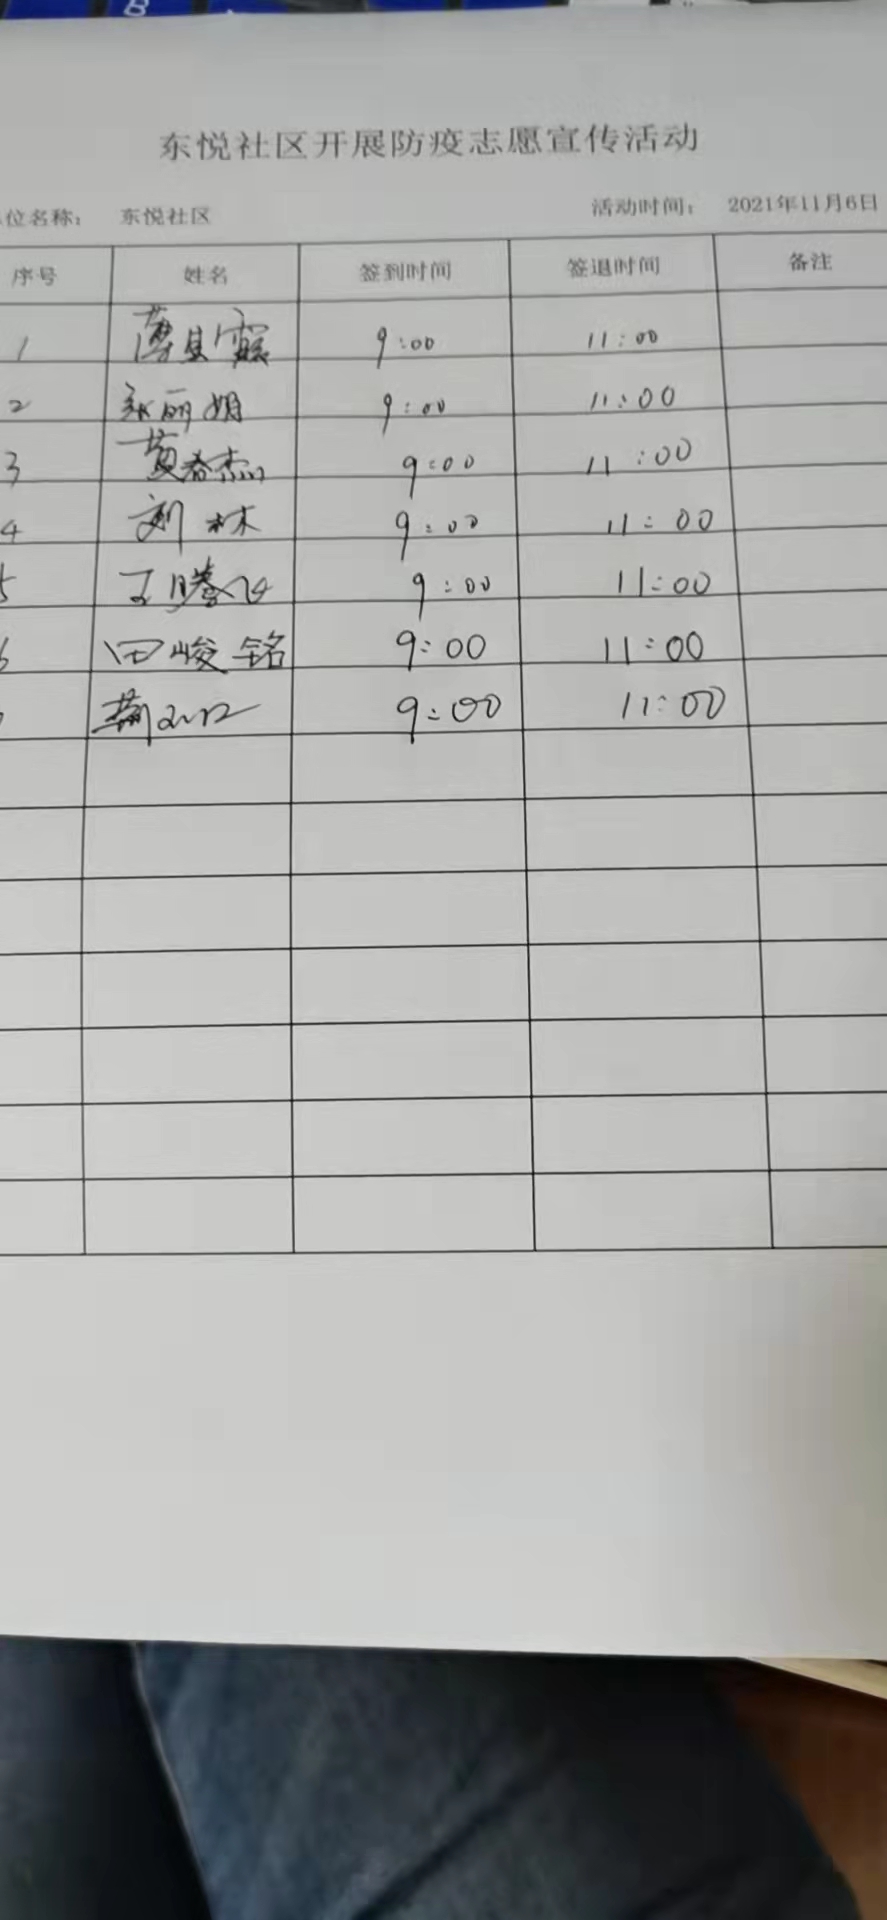 东悦社区开展防疫志愿宣传活动
位名称： 东悦社区 活动时间： 2021年11月6日
序号 姓名 签到时间 签退时间 备注
1 9:00 11:00
2 张丽娟 9:00 11:00
3 黄春杰 9:00 11:00
4 刘林 9:00 11:00
5 王腾飞 9:00 11:00
6 田峻铭 9:00 11:00
9:00 11:00